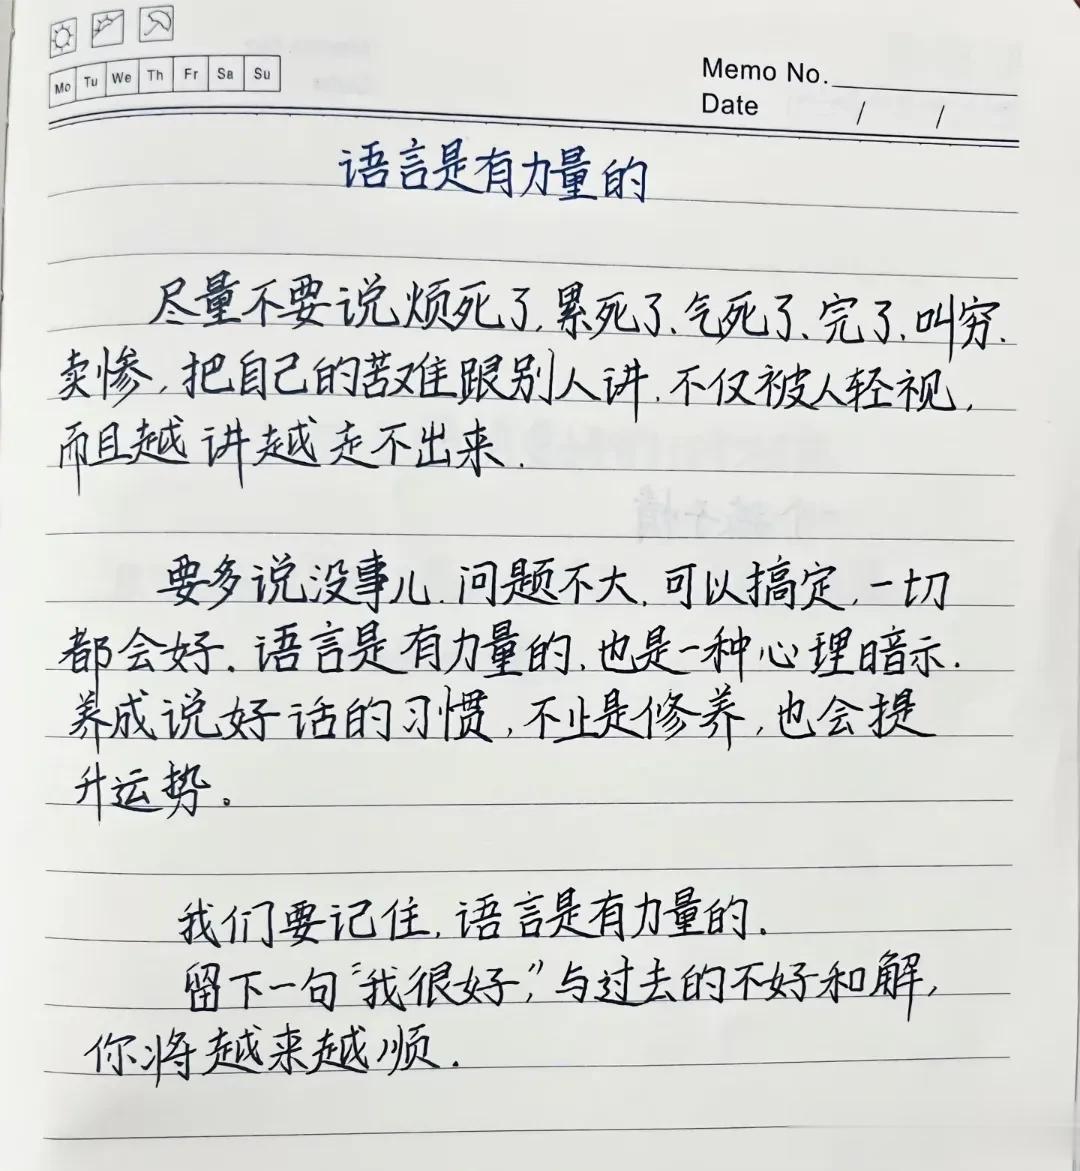 Mo Tu We Th Fr Sa Su
Memo No.
Date / /
语言是有力量的
尽量不要说烦死了,累死了、气死了、完了、叫穷.
卖惨,把自己的苦难跟别人讲.不仅被人轻视,
而且越讲越走不出来.
要多说没事儿.问题不大,可以搞定,一切
都会好.语言是有力量的,也是一种心理暗示.
养成说好话的习惯,不止是修养,也会提
升运势。
我们要记住,语言是有力量的.
留下一句“我很好,”与过去的不好和解,
你将越来越顺.